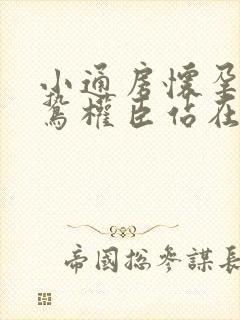 小通房懷孕
鷙權臣佔在
帝國總參謀長